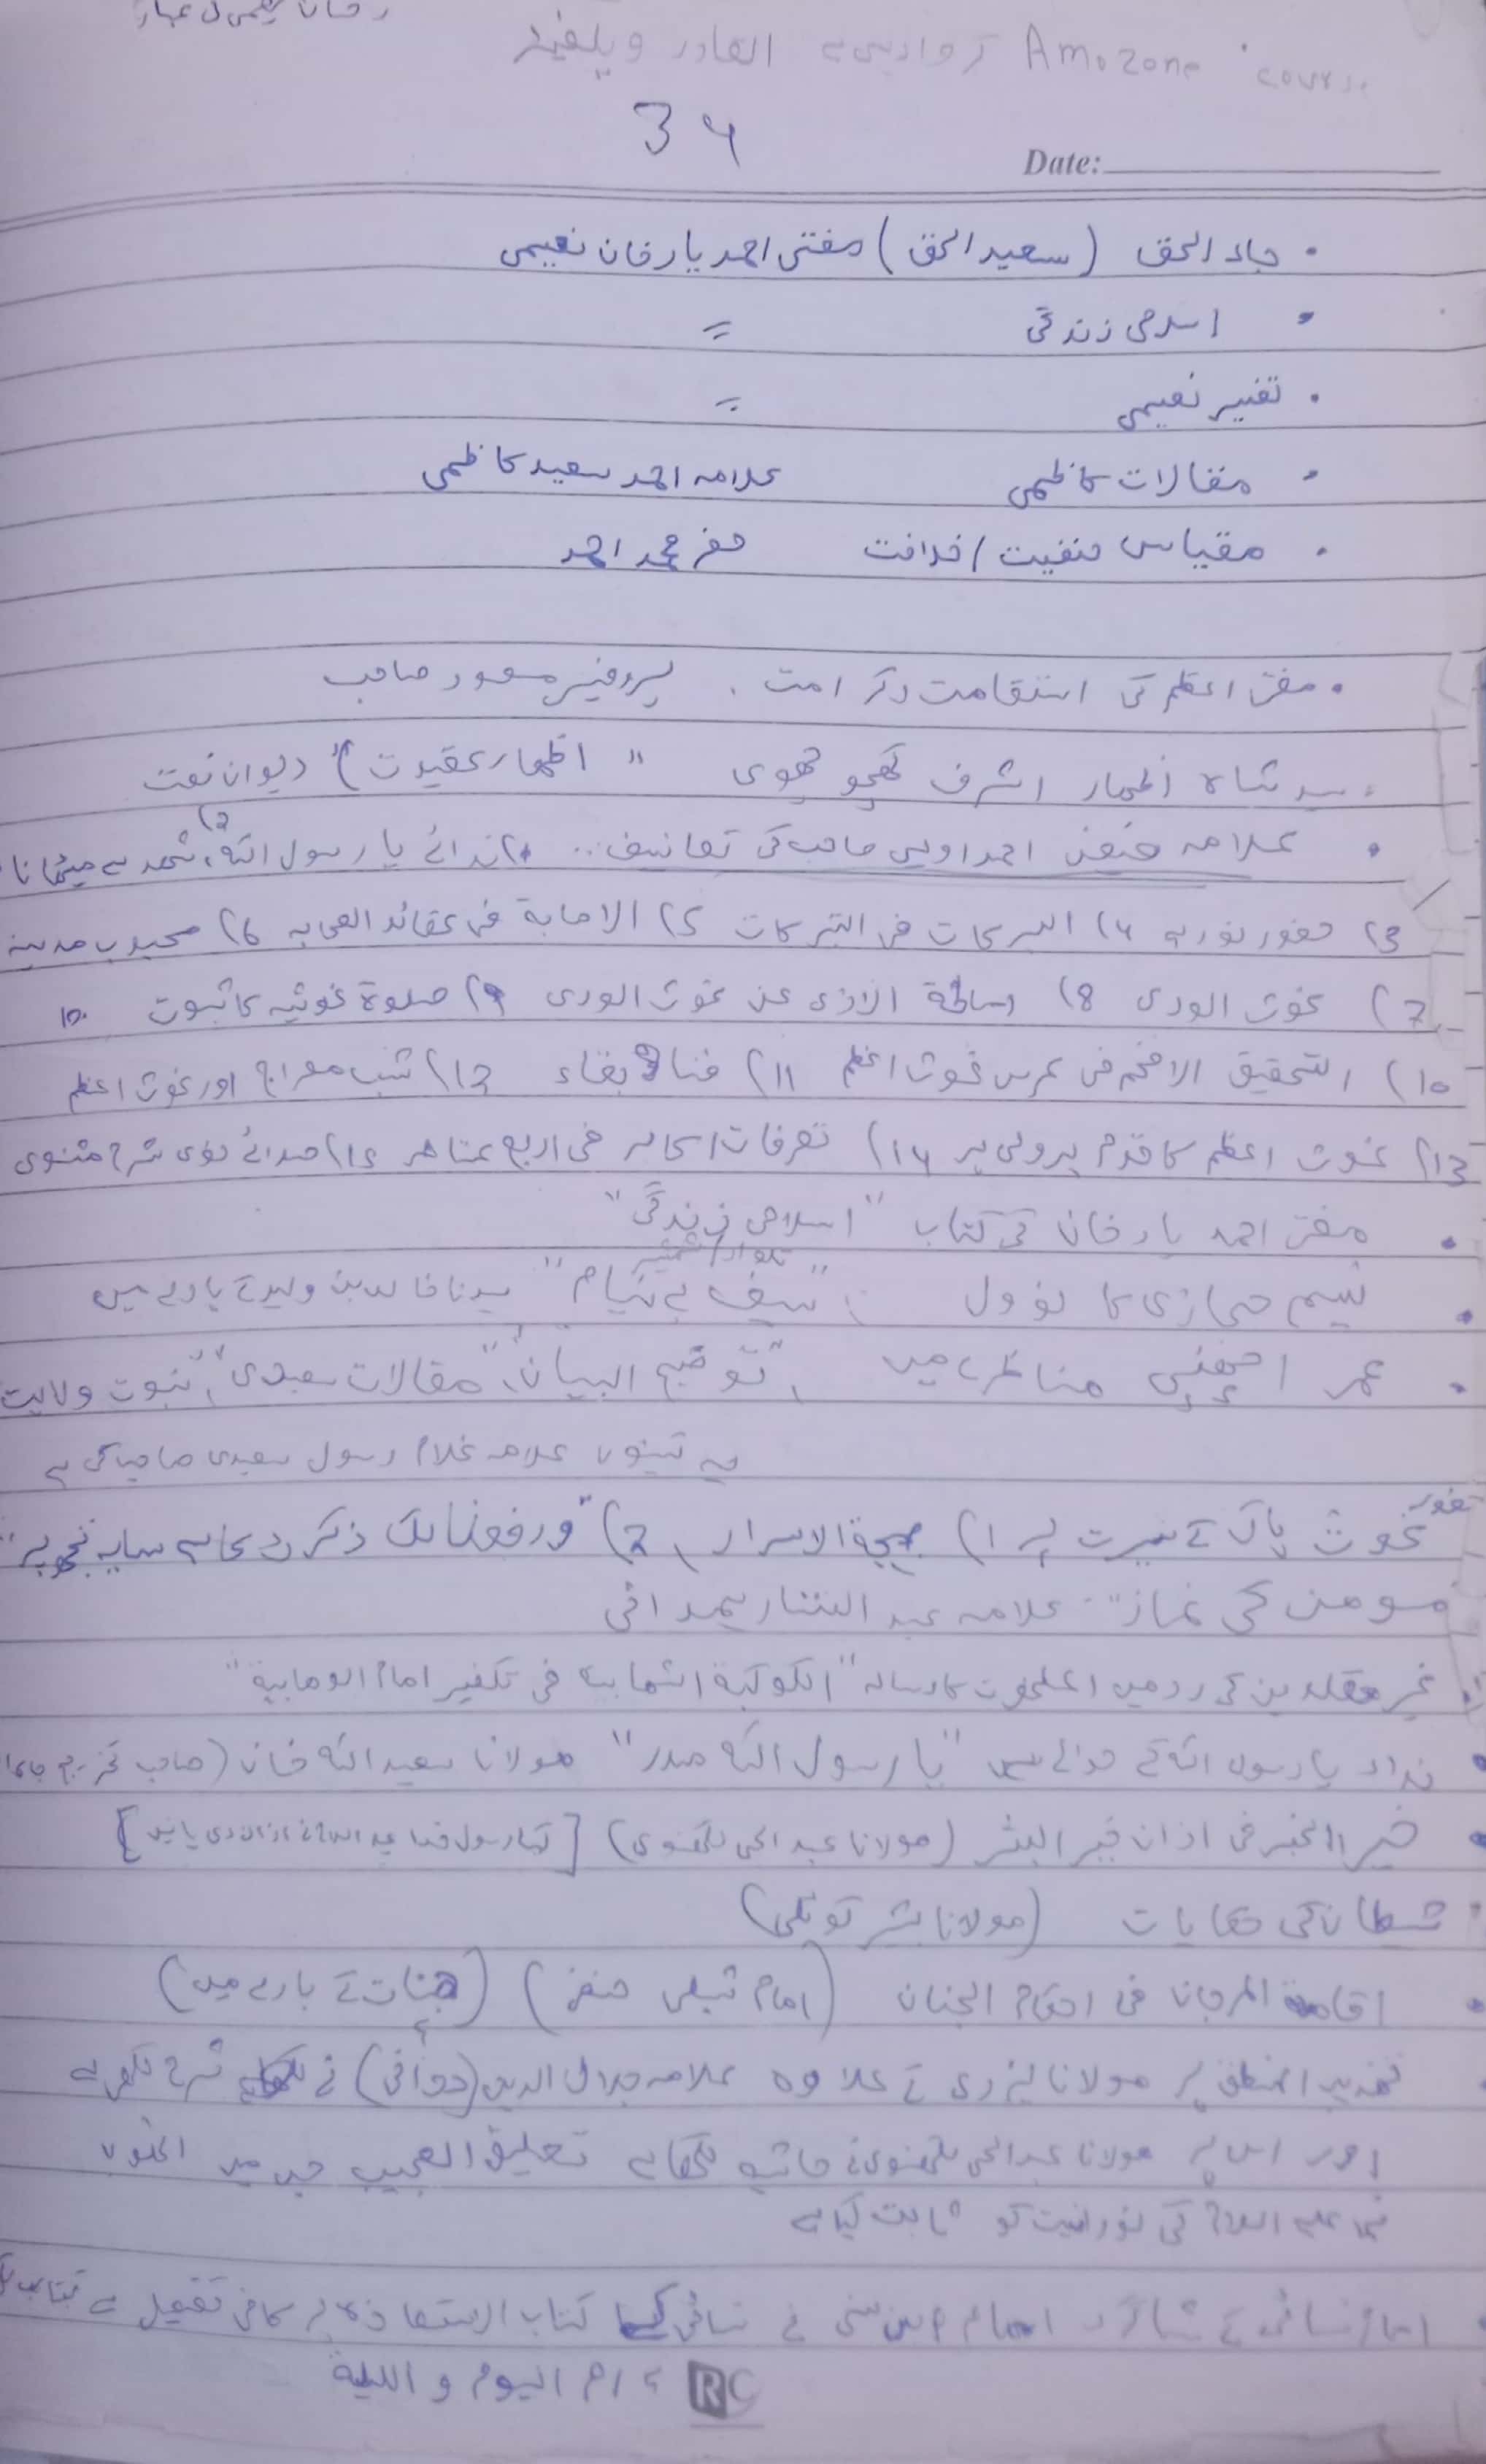 Amozone course کروا دیں ہے القادر ویلفیئر
34
Date:
• جاء الحق (سعید الحق) مفتی احمد یار خان نعیمی
• اسلامی زندگی 〃
• تفسیر نعیمی 〃
• مقالات کاظمی علامہ احمد سعید کاظمی
• مقیاس حنفیت / خلافت محمد احمد
• مفتی اعظم کی استقامت و کرامت . پروفیسر مسعود صاحب
سید شاہ اظہار اشرف کچھوچھوی " اظہار عقیدت " دیوان نعت
• علامہ فیض احمد اویسی صاحب کی تصانیف .. 1) ندائے یا رسول اللہ، 2) شہد سے میٹھا نا
3) 4) البرکات فی التبرکات 5) الاصابة فی عقائد الصحابہ 6) محبوب مدینہ
7) غوث الوری 8) اماطة الاذی عن غوث الوری 9) صلوة غوثیہ کا ثبوت 10
10) التحقیق الافخم فی عرس غوث اعظم 11) فنا و بقاء 12) شب معراج اور غوث اعظم
13) غوث اعظم کا قدم ہر ولی پر 14) تصرفات اکابر فی اربع عناصر 15) صدائے نوی شرح مثنوی
• مفتی احمد یار خان کی کتاب "اسلامی زندگی"
تلوار/شمشیر
• نسیم حجازی کا نوول ، "سیف بے نیام" سیدنا خالد بن ولید کے بارے میں
• عمر اچھنی مناظرے میں ، "توضیح البیان"، "مقالات سعیدی"، "ثبوت ولایت
یہ تینوں علامہ غلام رسول سعیدی صاحب کی ہے
حضور
غوث پاک کے سیرت پر 1) بہجة الاسرار ، 2) "ورفعنالک ذکرک کا ہے سایہ تجھ پر"
مومن کی نماز" علامہ عبد الستار ہمدانی
• غیر مقلدین کے رد میں اعلحضرت کا رسالہ "الکوکبة الشہابیہ فی تکفیر امام الوہابیة"
• نداء یا رسول اللہ کے حوالے سے "یا رسول اللہ مدد" مولانا سعید اللہ خان (صاحب تخریج جاء ا
• خیر الخبر فی اذان خیر البشر (مولانا عبد الحی لکھنوی) [کیا رسول خدا علیہ السلام نے اذان دی یا نہیں]
• شیطان کی حکایات (مولانا بشیر کوٹلی)
• اقامة المرجان فی احکام الجنان (امام شبلی حنفی) (جنات کے بارے میں)
• تہذیب المنطق پر مولانا یزدی کے علاوہ علامہ جلال الدین (دوانی) نے شرح لکھی ہے
اور اس پر مولانا عبد الحی لکھنوی نے حاشیہ لکھا ہے تعلیق العجیب جس میں انھوں
نبی علیہ السلام کی نورانیت کو ثابت کیا ہے
• امام نسائی کے شاگرد امام ابن سنی نے نسائی کتاب الاستعاذہ پر کافی تفصیل ہے کتاب کا
نام الیوم و اللیلة
RC